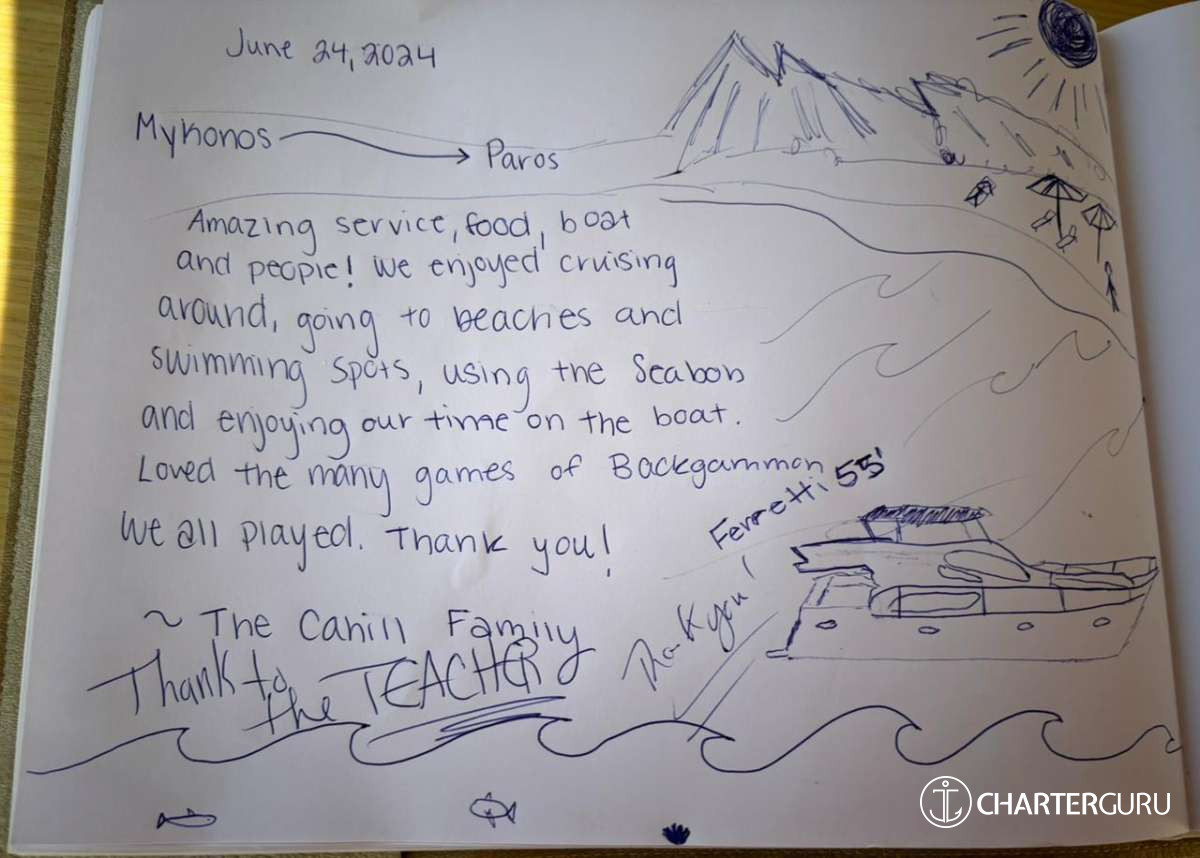 June 24, 2024
Mykonos → Paros
Amazing service, food, boat
and people! We enjoyed cruising
around, going to beaches and
swimming spots, using the Seabob
and enjoying our time on the boat.
Loved the many games of Backgammon
We all played. Thank you!
~ The Cahill Family
Thank to
the TEACHER
Ferretti 55'
CHARTERGURU